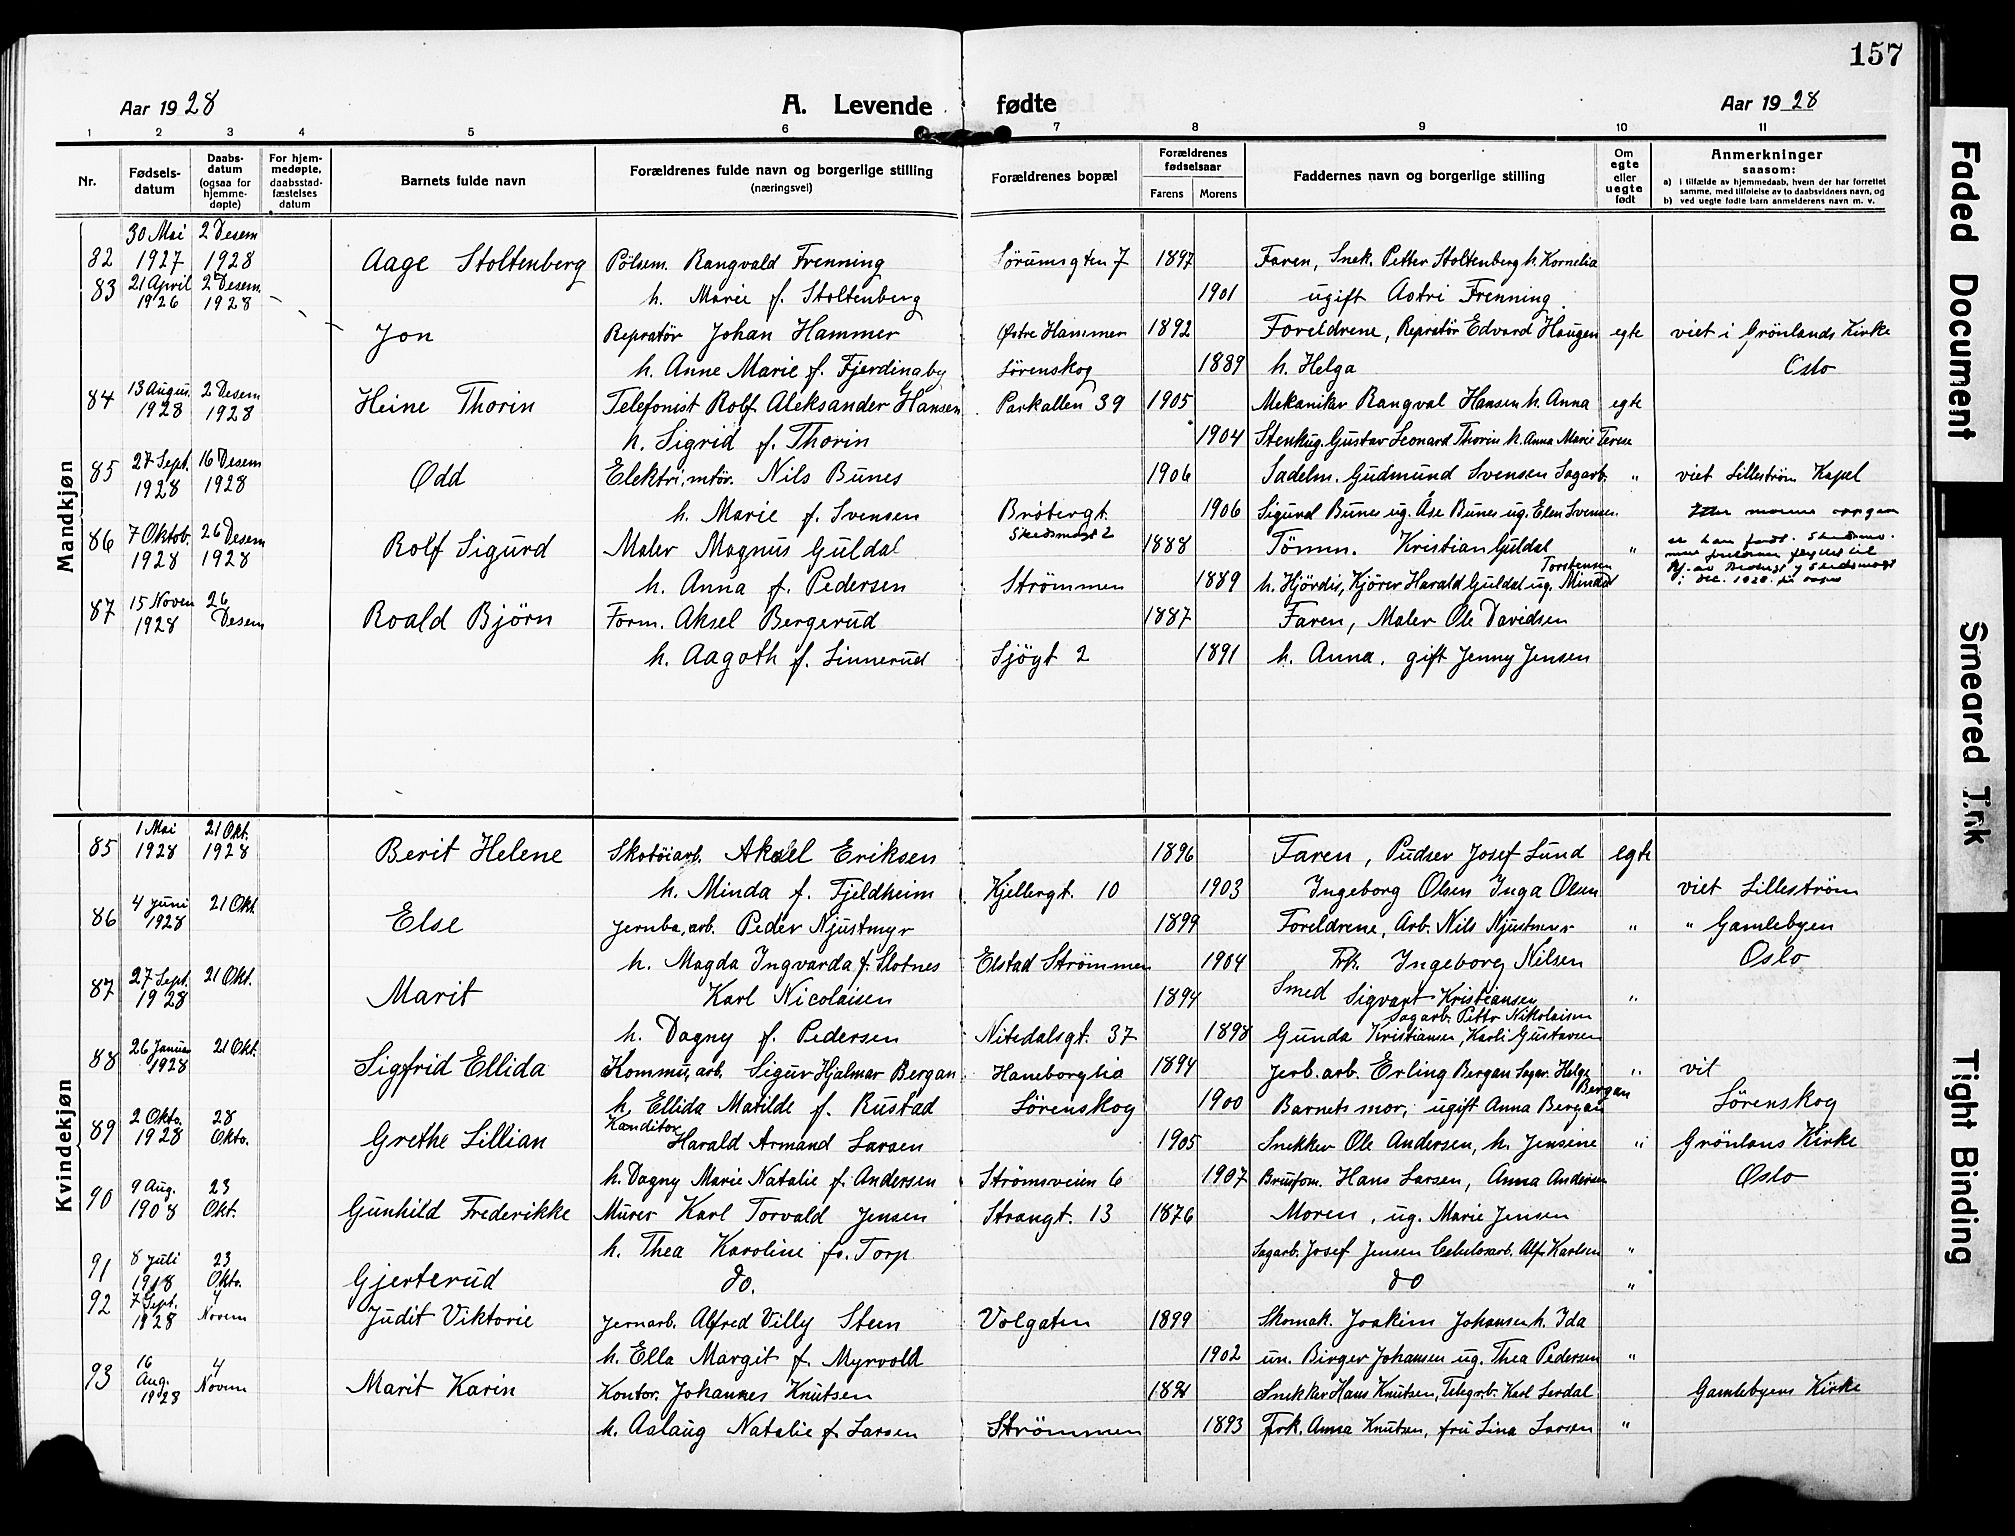 157
Aar 1928 A. Levende fødte Aar 1928
1 2 3 4 5 6 7 8 9 10 11
Nr. Fødselsdatum Daabsdatum (ogsaa for hjemmedøpte) For hjemmedøpte, daabsstadfæstelses datum Barnets fulde navn Forældrenes fulde navn og borgerlige stilling (næringsvei) Forældrenes bopæl Forældrenes fødselsaar Farens Morens Faddernes navn og borgerlige stilling Om egte eller uegte født Anmerkninger saasom:
a) I tilfælde av hjemmedaab, hvem der har forrettet samme, med tilføielse av to daabsvidners navn, og
b) ved uegte fødte barn anmelderens navn m. v.
Mandkjøn
30 Mai 2 Desem
82 1927 1928 Aage Stoltenberg Pölsem. Rangvald Frenning Sørumsgten 7 1897 Faren, Snek. Petter Stoltenberg h. Kornelia
83 21 April 1926 2 Desem 1928 h. Marie f. Stoltenberg 1901 ugift Astri Frenning
Jon Repratør Johan Hammer Østre Hammer 1892 Foreldrene, Repratør Edvard Haugen egte viet i Grönlands Kirke
h. Anne Marie f. Fjerdingby Lørenskog 1889 h. Helga Oslo
84 13 Augus. 1928 2 Desem 1928 Heine Thorin Telefonist Rolf Aleksander Hansen Parkallen 39 1905 Mekaniker Rangval Hansen h. Anna egte
h. Sigrid f. Thorin 1904 Stenhug. Gustav Leonard Thorin h. Anna Marie Terese
85 27 Sept. 1928 16 Desem 1928 Odd Elektri, mtør. Nils Bunes 1906 Sadelm. Gudmund Svensen Sagarb. " viet Lilleström Kapel
h. Marie f. Svensen Bröbergt. 1906 Sigurd Bunes ug. Åse Bunes ug. Elen Svensen.
Skedsmogt 2
86 7 Oktob. 1928 26 Desem 1928 Rolf Sigurd Maler Magnus Guldal 1888 Tömm. Kristian Guldal "
Torstensen
h. Anna f. Pedersen Strömmen 1889 h. Hjördis, Kjörer Harald Guldal ug. Minda
87 15 Novem 1928 26 Desem Roald Björn Form. Aksel Bergerud 1887 Faren, Maler Ole Davidsen
h. Aagoth f. Linnerud Sjögt 2 1891 h. Anna, gift Jenny Jensen
Kvindekjøn
85 1 Mai 1928 21 Okt. 1928 Berit Helene Skotöiarb. Aksel Eriksen 1896 Faren, Pudser Josef Lund egte
h. Minda f. Fjeldheim Kjellergt. 10 1903 Ingeborg Olsen Inga Olsen viet Lilleström
86 4 Juni 1928 21 Okt. Else Jernba, arb. Peder Njustmyr 1899 Foreldrene, Arb. Nils Njustmyr " " Gamlebyen
h. Magda Ingvarda f. Slotnes Elstad Strömmen 1904 Frk. Ingeborg Nilsen Oslo
87 27 Sept. 1928 21 Okt. Marit Karl Nicolaisen 1894 Smed Sigvart Kristiansen "
Sagarb. Petter Nikolaisen
h. Dagny f. Pedersen Nitedalsgt. 37 1898 Gunda Kristiansen, Karli Gustavsen
88 26 Januar 1928 21 Okt. Sigfrid Ellida Kommu, arb. Sigur Hjalmar Bergan Haneborglia 1894 Jerb. arb. Erling Bergan Sagar. Helge Bergan " vit
h. Ellida Matilde f. Rustad Lörenskog 1900 Barnets mor, ugift Anna Bergan Lörenskog
89 2 Okto. 1928 28 Okto. Grethe Lillian Kanditor Harald Armand Larsen 1905 Snekker Ole Andersen, h. Jensine " Grönlans Kirke
h. Dagny Marie Natalie f. Andersen Strömsveien 6 1907 Brusfom. Hans Larsen, Anna Andersen Oslo
90 9 Aug. 1908 23 Okt. Gunhild Frederikke Murer Karl Torvald Jensen Strangt. 13 1876 Moren, ug. Marie Jensen
h. Thea Karoline fø. Torp Sagarb. Josef Jensen Celulosarb. Alf Karlsen "
91 8 Juli 1918 23 Okto. Gjerterud do. do "
92 7 Sept. 1928 4 Novem Judit Viktorie Jernarb. Alfred Villy Steen Volgaten 1899 Skomak. Joakim Johansen h. Ida
h. Ella Margit f. Myrvold 1902 un. Birger Johansen ug. Thea Pedersen "
93 16 Aug. 1928 4 Novem Marit Karin Kontor. Johannes Knutsen 1891 Snekker Hans Knutsen, Telegrb. Karl Lerdal Gamlebyens Kirke
h. Aslaug Natalie f. Larsen Strömmen 1893 Frk. Anna Knutsen, fru Lina Larsen "
Faded Document
Smeared Ink
Tight Binding